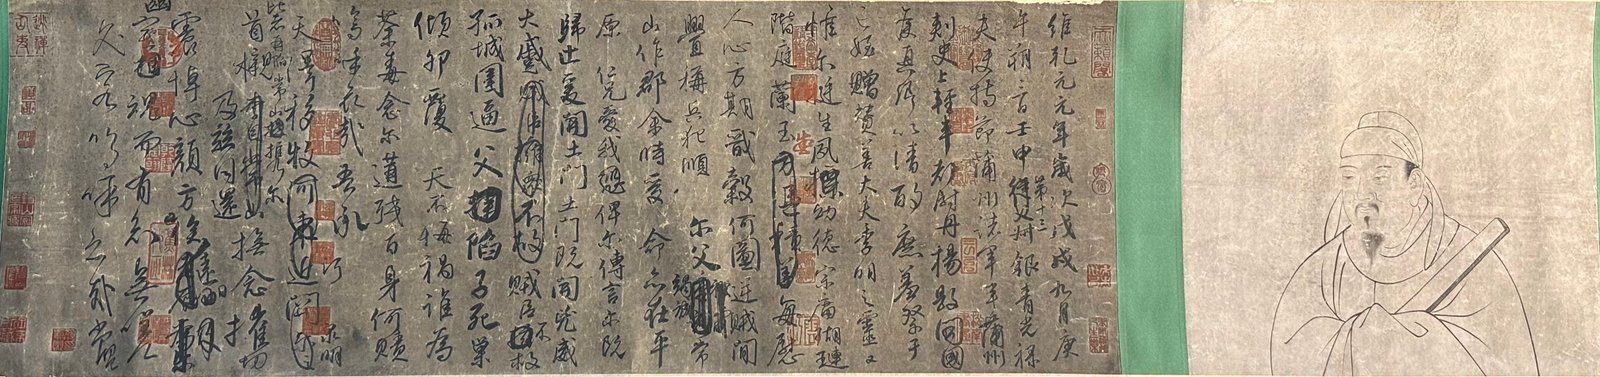 維乾元元年歲次戊戌九月庚
午朔三日壬申第十三從父叔銀青光祿
夫使持節蒲州諸軍事蒲州
刺史上輕車都尉丹楊縣開國
侯真卿以清酌庶羞祭于
亡姪贈贊善大夫季明之靈曰
惟爾挺生夙標幼德宗廟瑚璉
階庭蘭玉方憑積善每慰
人心方期戩穀何圖逆賊閒
釁稱兵犯順爾父竭誠常
山作郡余時受命亦在平
原仁兄愛我俾爾傳言爾既
歸止爰開土門土門既開兇威
大蹙賊臣擁眾不救賊臣不救
孤城圍逼父陷子死巢
傾卵覆天不悔禍誰為
荼毒念爾遘殘百身何贖
嗚乎哀哉吾承
天澤移牧河東近河關泉明
比者再陷常山攜爾
首櫬及茲同還亦自常山撫念摧切
震悼心顏方俟遠日卜爾
幽宅魂而有知無嗟
久客嗚呼哀哉尚饗